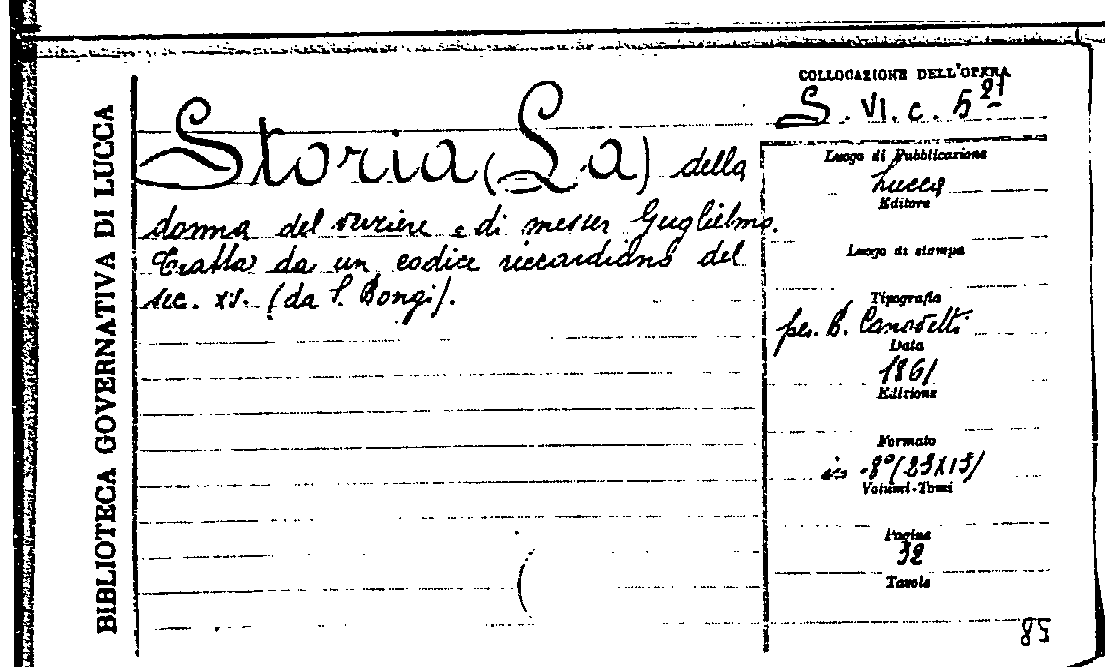 BIBLIOTECA GOVERNATIVA DI LUCCA
COLLOCAZIONE DELL'OPERA
S. VI. c. 5 21
Storia (La) della
donna del verziere e di messer Guglielmo.
Tratta da un codice riccardiano del
sec. XV. (da S. Bongi).
Luogo di Pubblicazione
Lucca
Editore
Luogo di stampa
Tipografia
per B. Canovetti
Data
1861
Edizione
Formato
in -8° (23X15)
Volumi-Tomi
Pagine
32
Tavole
58